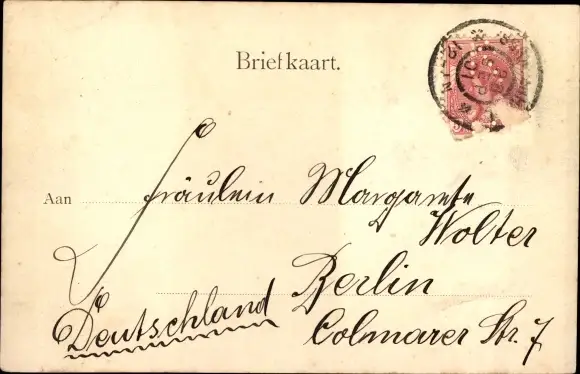 Briefkaart.
Aan Fräulein Margarete
Wolter
Berlin
Deutschland
Colmarer Str. 7